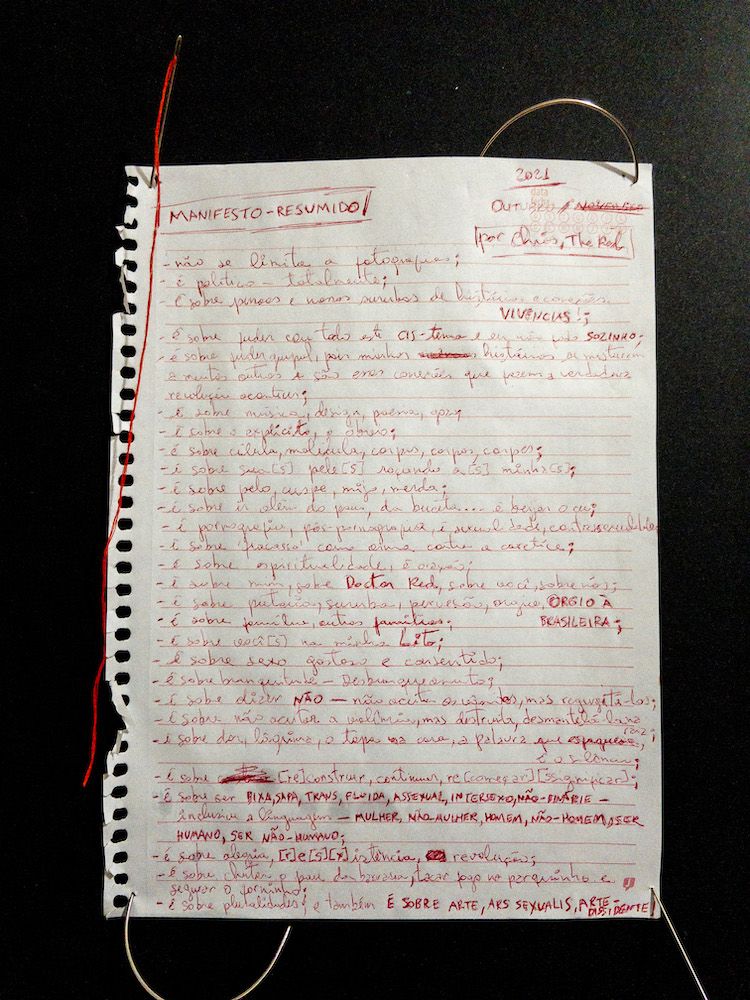 2021
MANIFESTO-RESUMIDO
OUTUBRO / NOVEMBRO
por Chris, The Red
- não se limita a fotografias;
- é político - totalmente;
- É sobre pessoas e nossas surubas de histórias e conexões.
VIVÊNCIAS!;
- É sobre foder com todo este CIS-tema e eu não posso SOZINHO;
- é sobre poder grupal, por minhas histórias se misturarem
a muitas outras e são essas conexões que fazem a verdadeira
revolução acontecer;
- É sobre música, design, poema, gozo;
- É sobre o explícito, o óbvio;
- É sobre célula, molécula, corpus, corpos, corpes;
- É sobre sua[s] pele[s] roçando a[s] minha[s];
- É sobre pelo, cuspe, mijo, merda;
- É sobre ir além do pau, da buceta... é beijar o cu;
- É pornografia, pós-pornografia, é sexualidade, contrassexualidade
- É sobre fracasso como arma contra a caretice;
- É sobre espiritualidade, é oração;
- É sobre mim, sobre Doctor Red, sobre você, sobre nós;
- É sobre putaria, suruba, perversão, orgia, ORGIO À
BRASILEIRA;
- É sobre família, outras famílias;
- É sobre você[s] na minha Lito;
- É sobre sexo gostoso e consentido;
- É sobre branquitude - Desbranqueamento;
- É sobre dizer NÃO - não aceitar os , mas regurgitá-los;
- É sobre não aceitar a violência, mas destruí-la, desmantelá-la na
raiz;
- É sobre dor, lágrima, o tapa na cara, a palavra que espaqueia,
é o silêncio;
- É sobre [re]construir, continuar, re[começar][significar];
- É sobre ser BIXA, SAPA, TRANS, FLUIDA, ASSEXUAL, INTERSEXO, NÃO-BINÁRIE -
inclusive a linguagem - MULHER, NÃO-MULHER, HOMEM, NÃO-HOMEM, SER
HUMANO, SER NÃO-HUMANO;
- É sobre alegria, [r]e[s][x]istência, revolução;
- É sobre chutar o pau da barraca, tacar fogo no parquinho e
segurar o forninho;
- É sobre pluralidades; e também É SOBRE ARTE, ARS SEXUALIS, ARTE-
DISSIDENTE